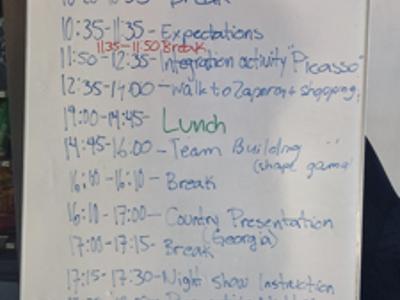 Break
10:35-11:35 - Expectations
11:35-11:50 Break
11:50-12:35- Integration activity "Picasso"
12:35-14:00 - Walk to + shopping
14:45- Lunch
14:45-16:00 - Team Building
(shape game)
16:00 -16:10 - Break
16:10 - 17:00 - Country Presentation
(Georgia)
17:00 -17:15- Break
17:15- 17:30-Night show Instruction